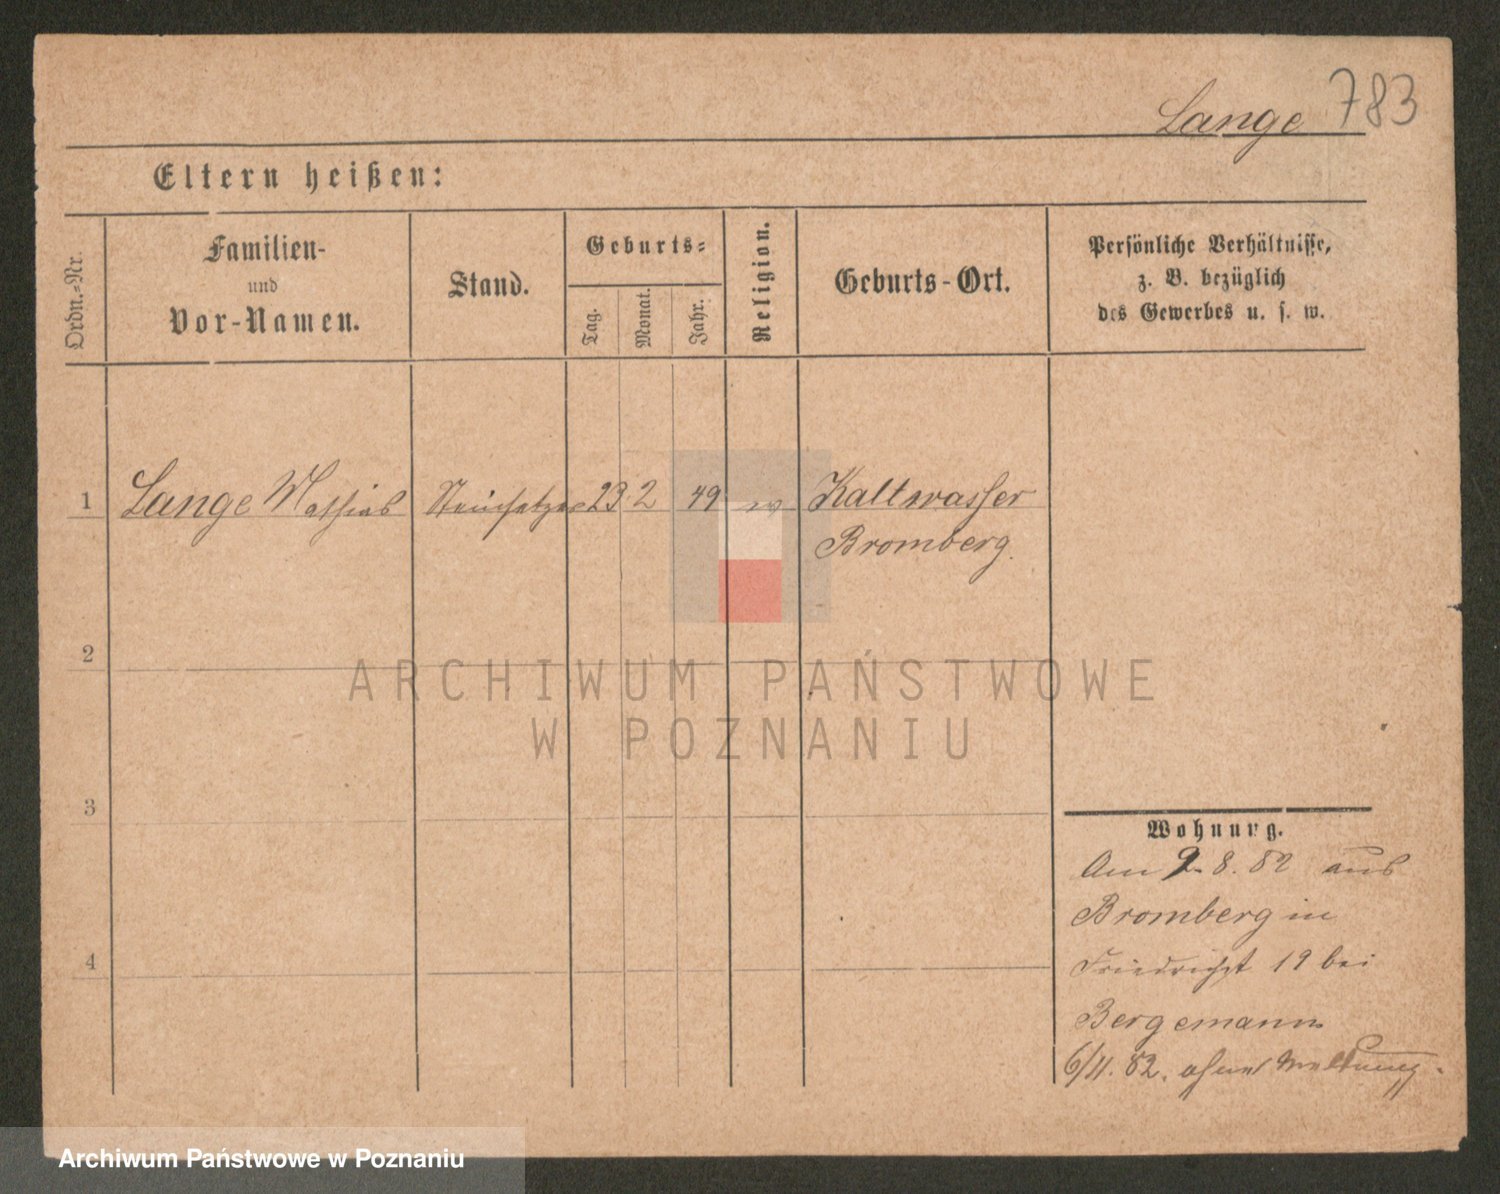 Lange 783
Eltern heißen:
Ordn.-Nr.
Familien-
und
Vor-Namen.
Stand.
Geburts-
Tag.
Monat.
Jahr.
Religion.
Geburts-Ort.
Persönliche Verhältnisse,
z. B. bezüglich
des Gewerbes u. s. w.
1 Lange Mathias Steinsetzer 23 2 49 Kaltwasser
Bromberg.
2
3
4
Wohnung.
Am 9. 8. 82 aus
Bromberg in
Friedrichst 19 bei
Bergemann
6/11. 82. ohne Meldung.
ARCHIWUM PAŃSTWOWE
W POZNANIU
Archiwum Państwowe w Poznaniu